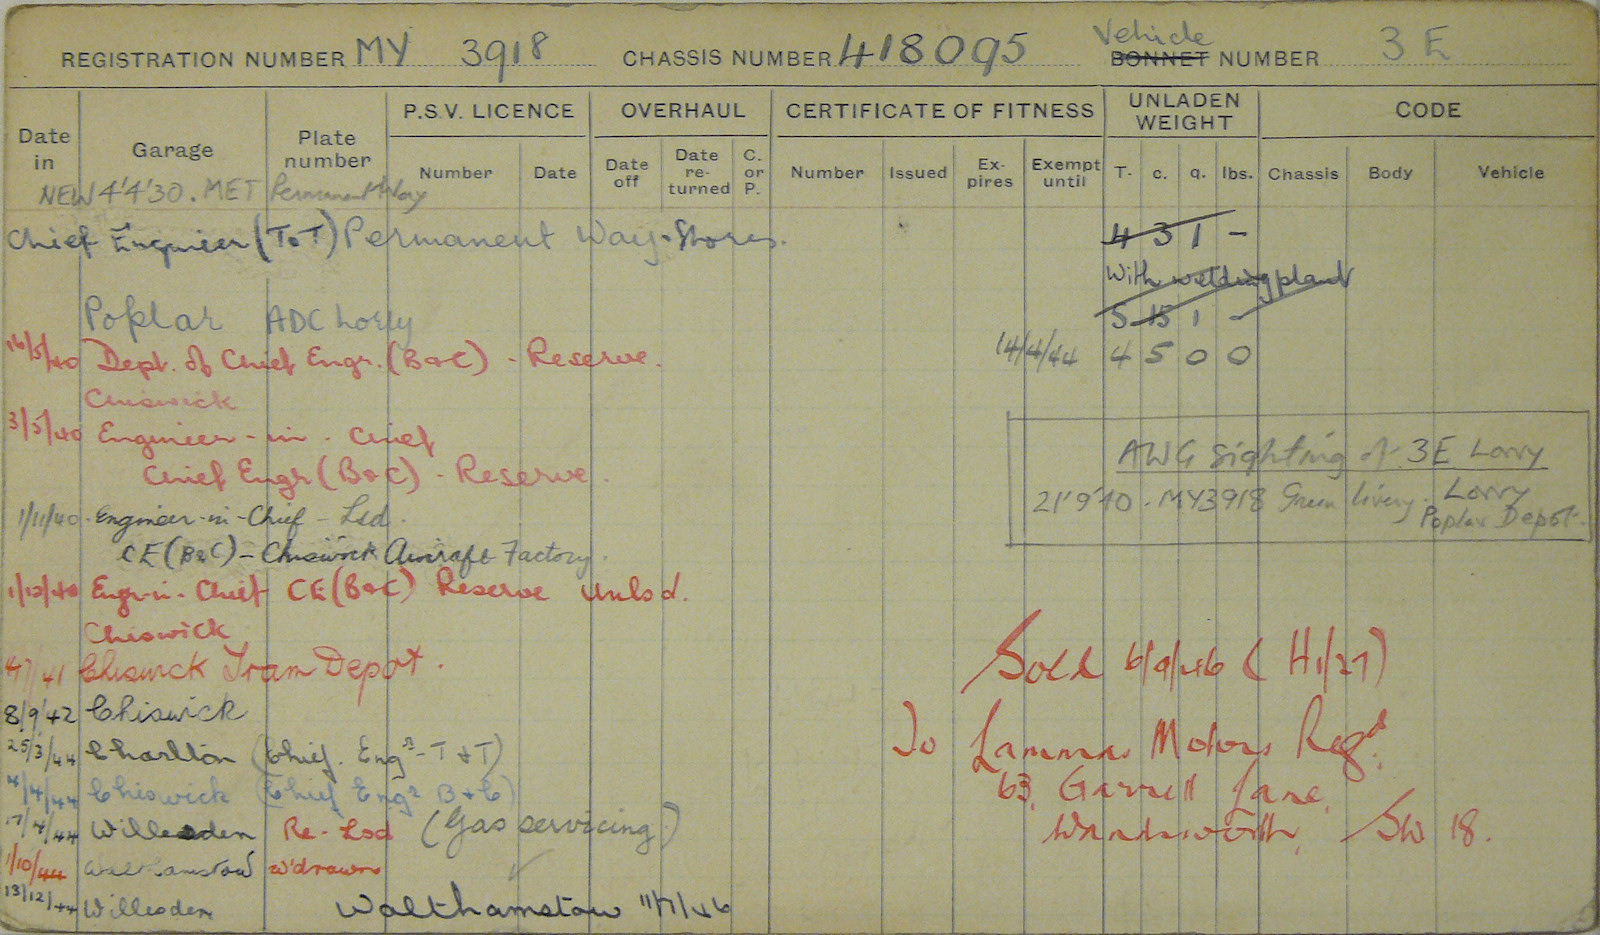 REGISTRATION NUMBER MY 3918 CHASSIS NUMBER 418095 Vehicle BONNET NUMBER 3 E
Date in Garage Plate number P.S.V. LICENCE OVERHAUL CERTIFICATE OF FITNESS UNLADEN WEIGHT CODE
Number Date Date off Date re-turned C. or P. Number Issued Ex-pires Exempt until T. c. q. lbs. Chassis Body Vehicle
NEW 4'4'30. MET Permanent Way
Chief Engineer (T&T) Permanent Way. Stores. 4 3 1 -
With welding plant
Poplar ADC Lorry 5 15 1 -
16/5/40 Dept. of Chief Engr. (B&C) - Reserve. 14/4/44 4 5 0 0
Chiswick
3/5/40 Engineer-in-Chief
Chief Engr (B&C) - Reserve.
AWG Sighting of 3E Lorry
21'9'40. MY3918 Green livery. Lorry
Poplar Depot.
1/11/40. Engineer-in-Chief - Lsd.
CE (B&C) - Chiswick Aircraft Factory.
1/12/40 Engr-in-Chief CE (B&C) Reserve Unlsd.
Chiswick
4/7/41 Chiswick Tram Depot.
8/9/42 Chiswick
25/3/44 Charlton (Chief. Engr - T & T)
4/4/44 Chiswick (Chief Engr B & C)
17/4/44 Willesden Re-Lsd (Gas servicing)
1/10/44 Walthamstow W'drawn
13/12/44 Willesden Walthamstow 11/7/46
Sold 6/9/46 (H1/27)
To Lammas Motors Regd.
63, Garrett Lane,
Wandsworth, SW 18.